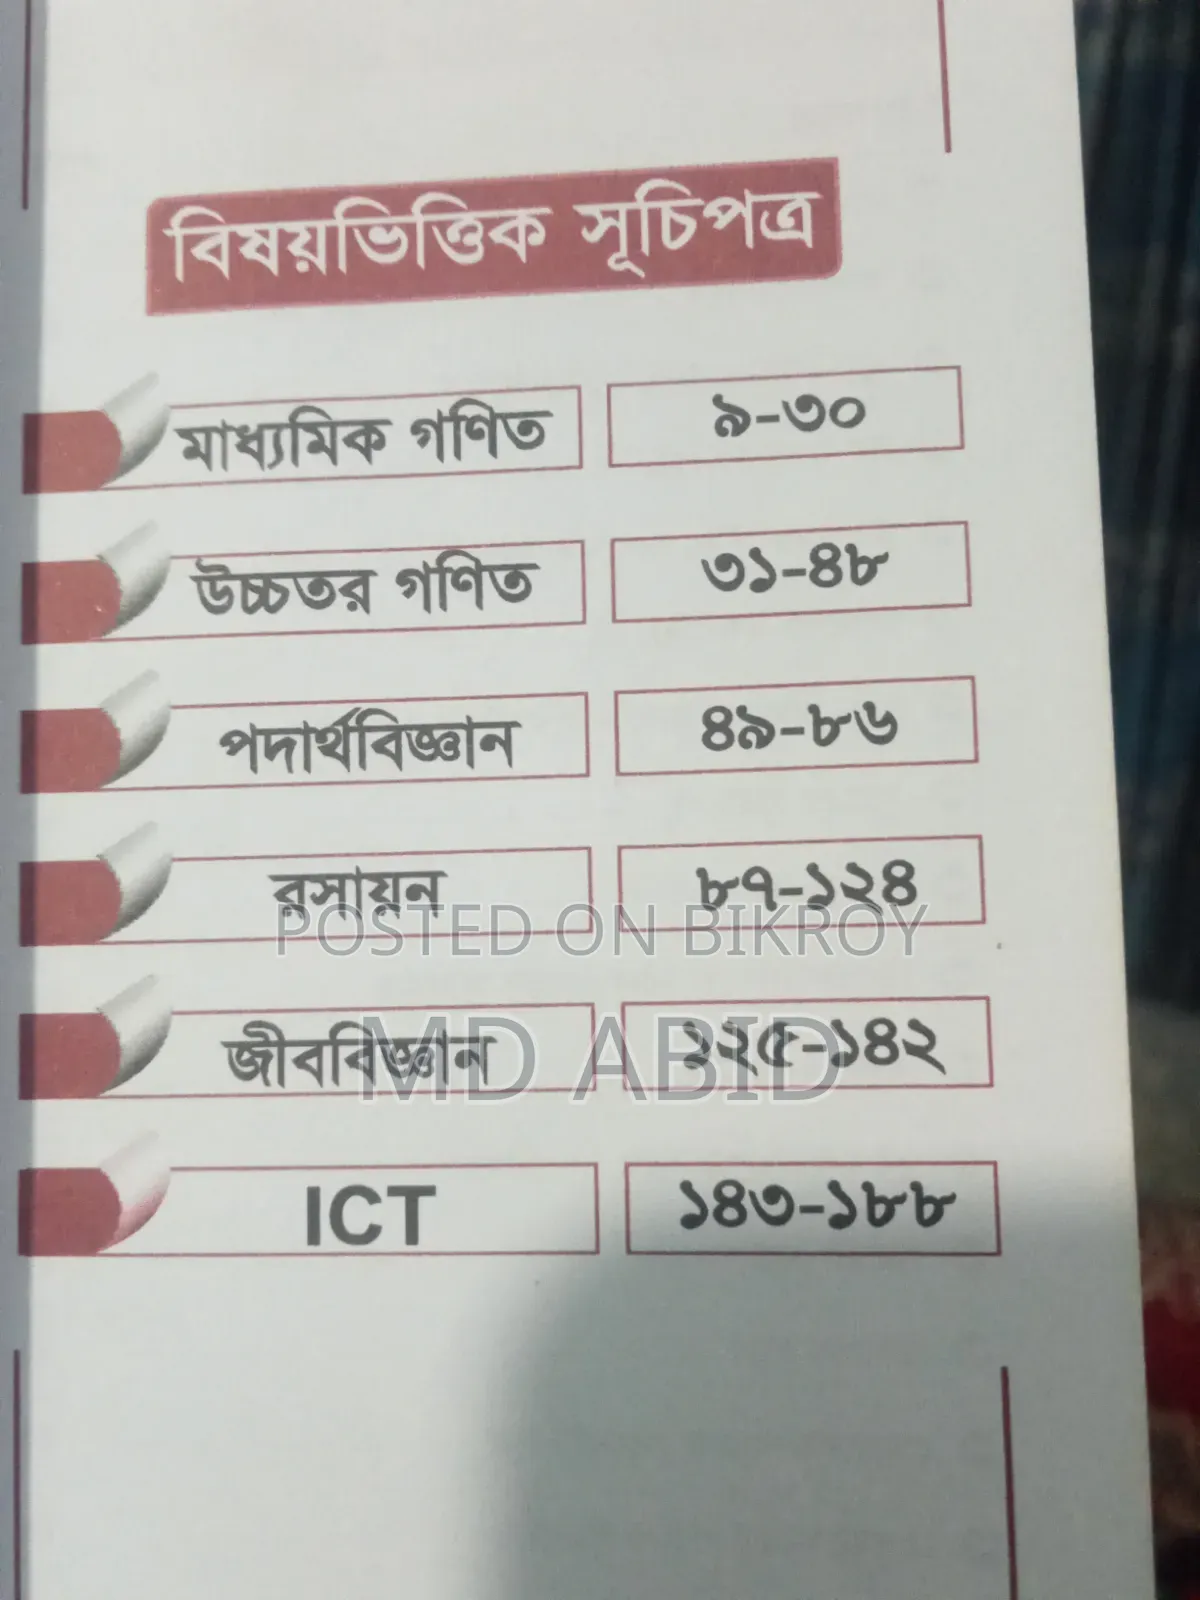 বিষয়ভিত্তিক সূচিপত্র
মাধ্যমিক গণিত ৯-৩০
উচ্চতর গণিত ৩১-৪৮
পদার্থবিজ্ঞান ৪৯-৮৬
রসায়ন ৮৭-১২৪
POSTED ON BIKROY
জীববিজ্ঞান ১২৫-১৪২
MD ABID
ICT ১৪৩-১৮৮